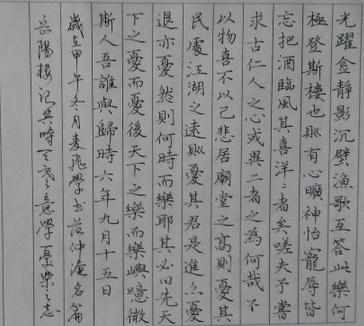 光躍金靜影沉璧漁歌互答此樂何
極登斯樓也則有心曠神怡寵辱皆
忘把酒臨風其喜洋洋者矣嗟夫予嘗
求古仁人之心或異二者之為何哉不
以物喜不以己悲居廟堂之高則憂其
民處江湖之遠則憂其君是進亦憂
退亦憂然則何時而樂耶其必曰先天
下之憂而憂後天下之樂而樂歟噫微
斯人吾誰與歸時六年九月十五日
歲在甲午冬月 學書范仲淹名篇
岳陽樓記 時 意學 樂之志